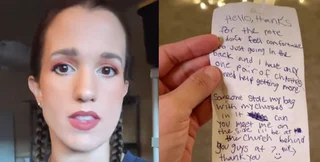 Hello, thanks
for the note
I don't feel comfortable
to just going in the
back and I have only
one pair of
need help getting more
Someone stole my bag
with my
in it can
you meet me on
the side I'll be at
the church behind
you guys at 7
thank you